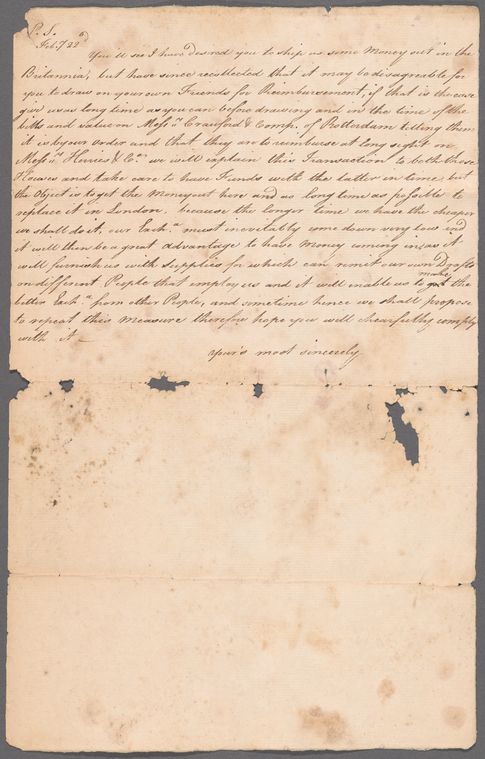 P.S.
Feby 22d
You'll see I have desired you to ship us some Money out in the
Britannia, but have since recollected that it may be disagreeable for
you to draw on your own Friends for Reimbursement, if that is the case
give us as long time as you can before drawing and in the time of the
bills and value on Messrs Craufurd & Comp. of Rotterdam telling them
it is by our order and that they are to reimburse at long sight on
Messrs Herries & Co. we will explain this Transaction to both these
Houses and take care to have Funds with the latter in time, but
the Object is to get the Money out here and as long time as possible to
replace it in London, because the longer time we have the cheaper
we shall do it, our Exch.a must inevitably come down very low and
it will then be a great advantage to have Money coming in as it
will furnish us with supplies for which can remit our own Drafts
on different People that employ us and it will enable us to make the
better Exch.a from other People, and sometime hence we shall propose
to repeat this measure therefore hope you will chearfully comply
with it —
Your's most sincerely